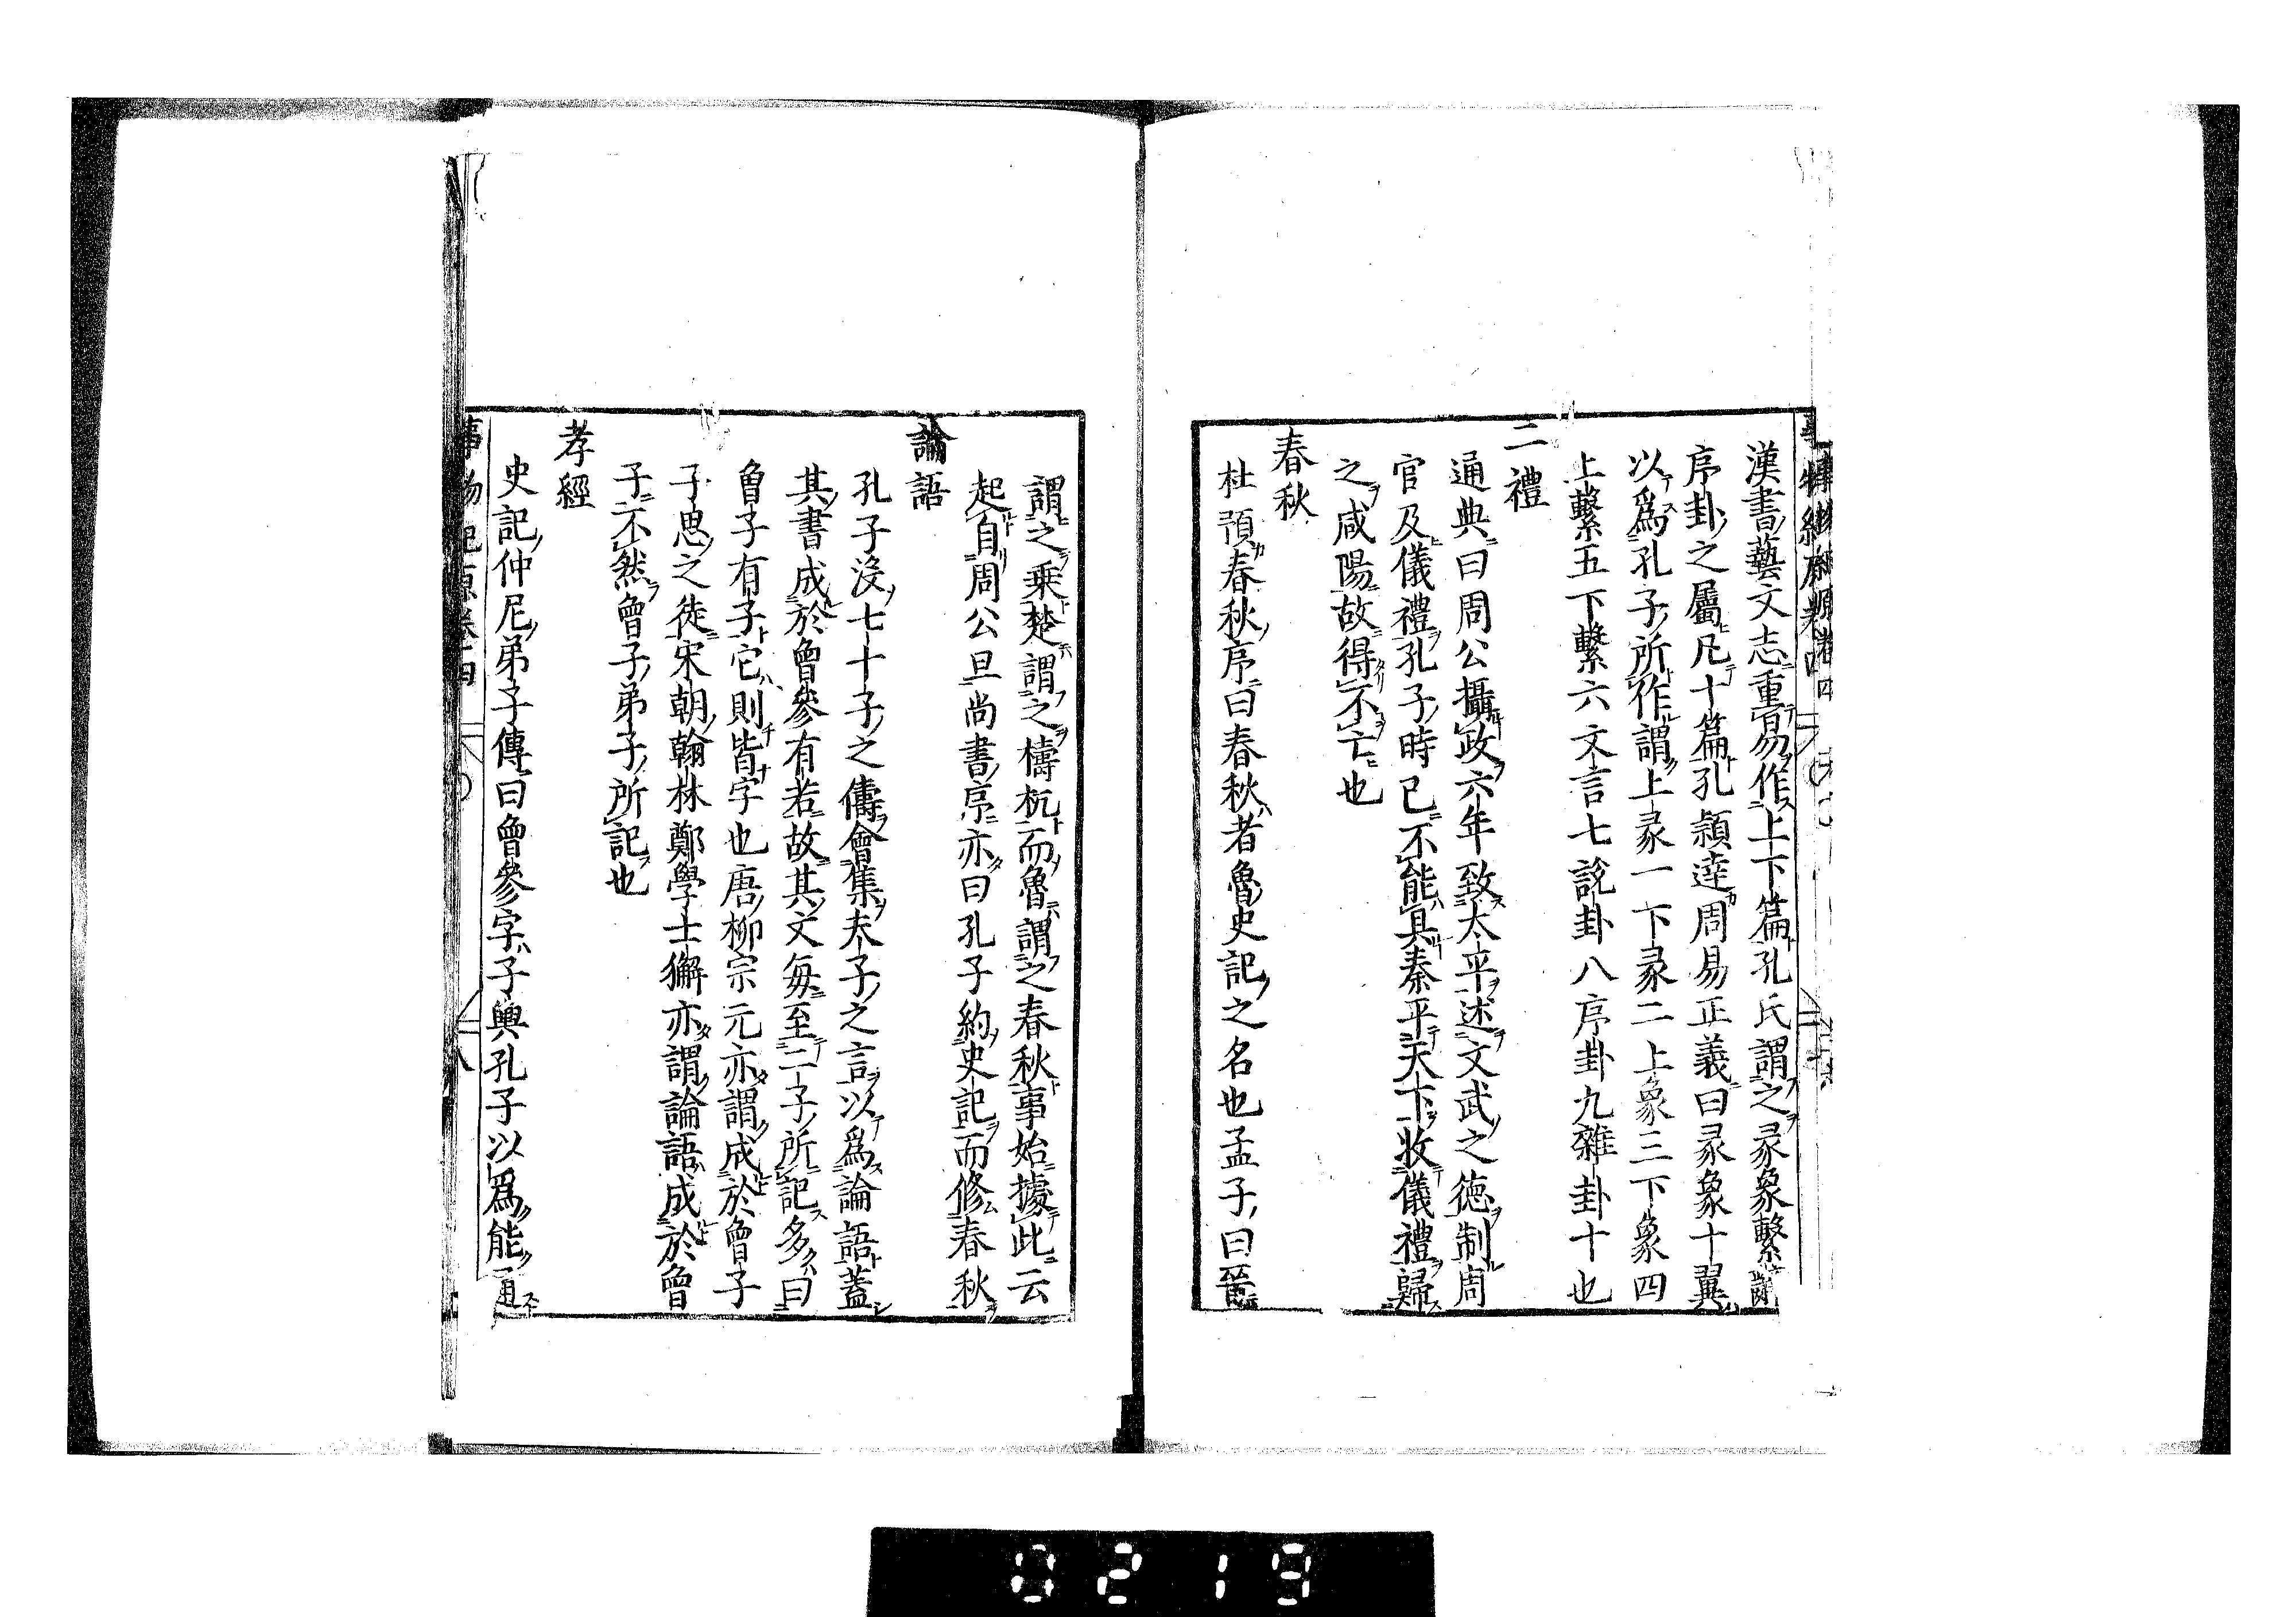 漢書藝文志重易作上下篇孔氏謂之彖象繫辭
序卦之屬凡十篇孔穎達周易正義曰彖象十翼
以爲孔子所作謂上彖一下彖二上象三下象四
上繫五下繫六文言七說卦八序卦九雜卦十也
二禮
通典曰周公攝政六年致太平述文武之德制周
官及儀禮孔子時已不能具秦平天下收儀禮歸
之咸陽故得不亡也
春秋
杜預春秋序曰春秋者魯史記之名也孟子曰晉
謂之乗楚謂之檮杌而魯謂之春秋事始據此云
起自周公旦尚書序亦曰孔子約史記而修春秋
論語
孔子沒七十子之儔會集夫子之言以爲論語蓋
其書成於曾參有若故其文每至二子所記多曰
曾子有子它則皆字也唐柳宗元亦謂成於曾子
子思之徒宋朝翰林鄭學士獬亦謂論語成於曾
子不然曾子弟子所記也
孝經
史記仲尼弟子傳曰曾參字子輿孔子以爲能通
事物紀原卷四
0219